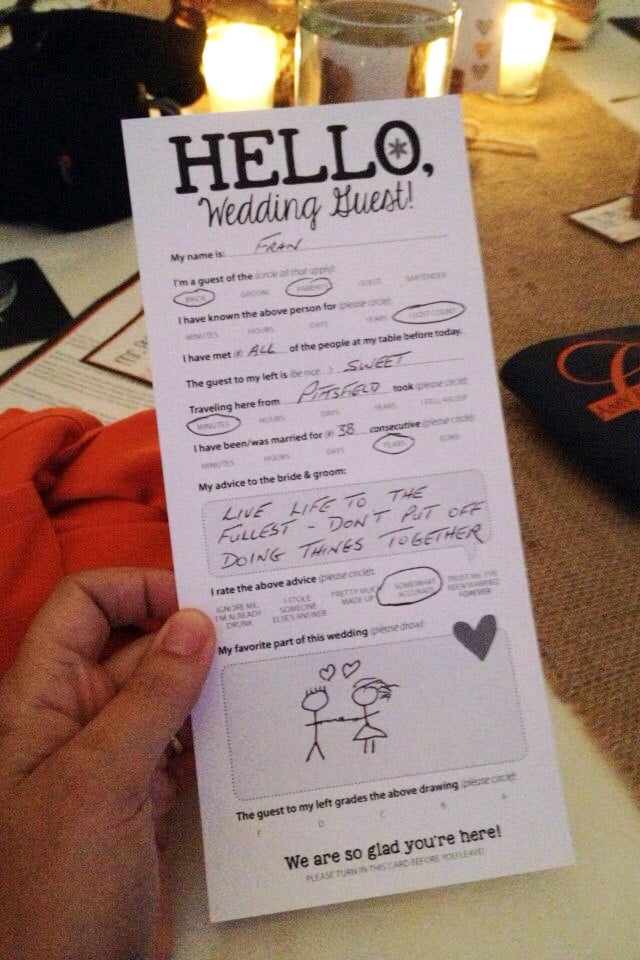 HELLO,
Wedding Guest!
My name is: FRAN
I'm a guest of the (circle all that apply):
BRIDE GROOM PARENTS GUEST BARTENDER
I have known the above person for (please circle):
MINUTES HOURS DAYS YEARS I LOST COUNT
I have met (#) ALL of the people at my table before today.
The guest to my left is (be nice...) SWEET
Traveling here from PITTSFIELD took (please circle):
MINUTES HOURS DAYS YEARS I FELL ASLEEP
I have been/was married for (#) 38 consecutive (please circle):
MINUTES HOURS DAYS YEARS EONS
My advice to the bride & groom:
LIVE LIFE TO THE
FULLEST - DON'T PUT OFF
DOING THINGS TOGETHER
I rate the above advice (please circle):
IGNORE ME, I'M ALREADY DRUNK I STOLE SOMEONE ELSE'S ANSWER PRETTY MUCH MADE UP SOMEWHAT ACCURATE TRUST ME, I'VE BEEN MARRIED FOREVER
My favorite part of this wedding (please draw):
The guest to my left grades the above drawing (please circle):
F D C B A
We are so glad you're here!
PLEASE TURN IN THIS CARD BEFORE YOU LEAVE!